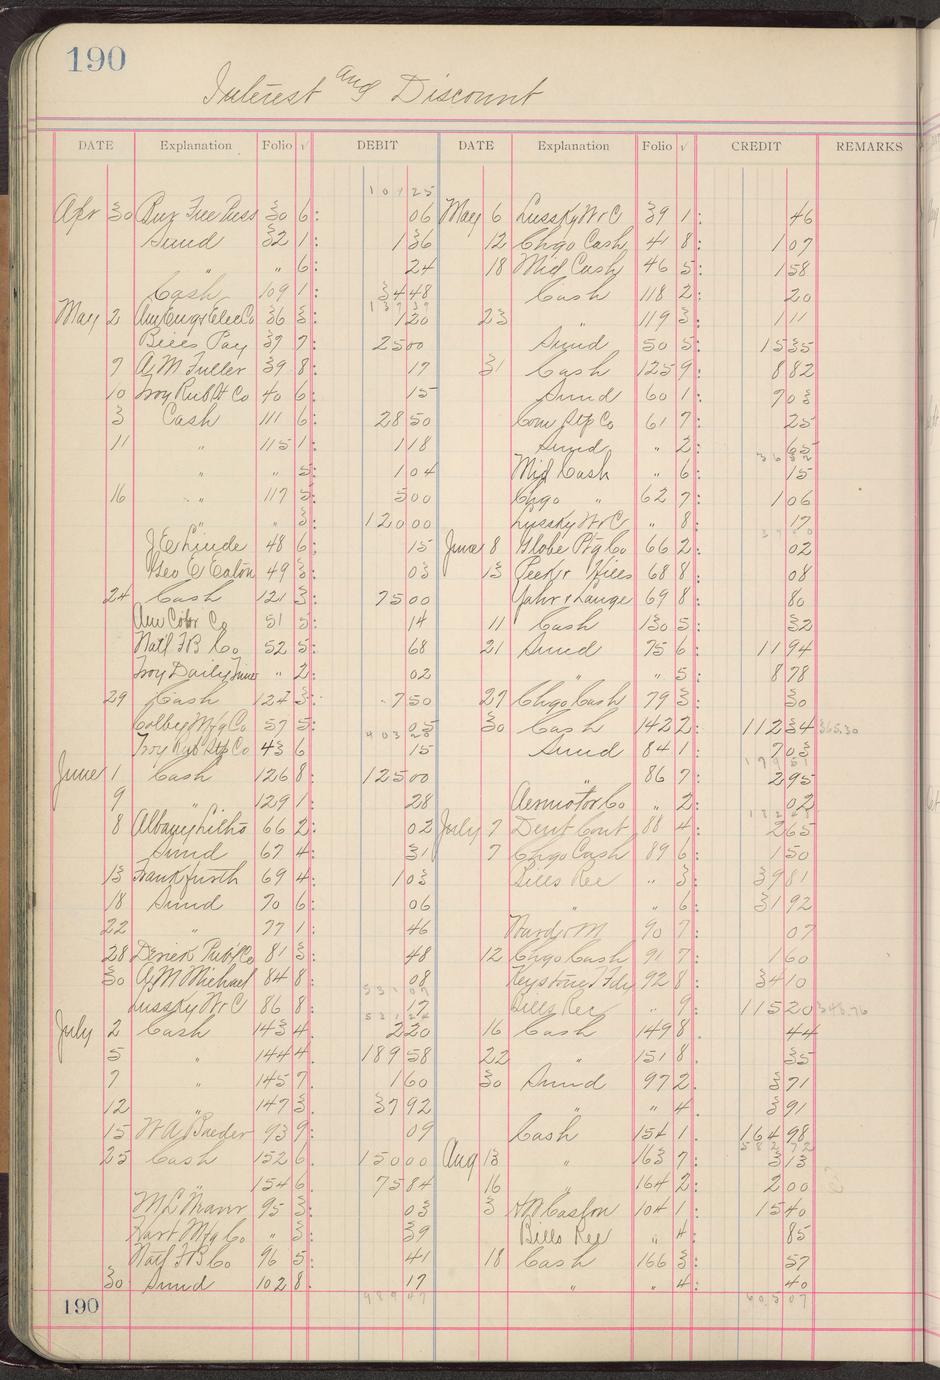 190
Interest and Discount
DATE Explanation Folio √ DEBIT DATE Explanation Folio √ CREDIT REMARKS
Apr 30 30 6: 06 May 6 Lussky W & C 39 1: 46
Sund 32 1: 1 36 12 Chgo Cash 41 8: 1 07
" " 6: 24 18 Mid Cash 46 5: 1 58
Cash 109 1: 34 48 Cash 118 2: 20
May 2 Am Engr Elec Co 36 3: 1 20 23 " 119 3: 1 11
Bills Pay 37 7: 25 00 Sund 50 5: 15 35
7 A M Fuller 39 8: 17 31 Cash 125 9: 8 82
10 Troy Rub St Co 40 6: 15 Sund 60 1: 7 03
3 Cash 111 6: 28 50 Com Stp Co 61 7: 25
11 " 115 1: 1 18 Sund " 2: 65
" " 5: 1 04 Mid Cash " 6: 15
16 " 117 5: 5 00 Chgo " 62 7: 1 06
" " 3: 120 00 Lussky W & C " 8: 17
J E Linde 48 6: 15 June 8 Globe Ptg Co 66 2: 02
Geo C Eaton 49 3: 03 13 68 8: 08
24 Cash 121 3: 75 00 Yahr & Lange 69 8: 80
Am Color Co 51 5: 14 11 Cash 130 5: 32
Natl F B Co 52 5: 68 21 Sund 75 6: 11 94
Troy Daily Times " 2: 02 " 5: 8 78
29 Cash 124 3: 7 50 27 Chgo Cash 79 3: 30
Colby Mfg Co 57 5: 05 30 Cash 142 2: 112 34 365.30
Troy Rub Stp Co 43 6 15 Sund 84 1: 7 03
June 1 Cash 126 8: 125 00 " 86 7: 2 95
9 " 129 1: 28 Aermotor Co " 2: 02
8 Albany Litho 66 2: 02 July 7 Dent Cont 88 4: 2 65
Sund 67 4: 31 7 Chgo Cash 89 6: 1 50
13 Frankfurth 69 4: 1 03 Bills Rec " 3: 39 81
18 Sund 70 6: 06 " " 6: 31 92
22 " 77 1: 46 Ward & M 90 7: 07
28 81 3: 48 12 Chgo Cash 91 7: 1 60
30 A J McMichael 84 8: 08 Keystone Fdy 92 8: 34 10
Lussky W & C 86 8: 17 Bills Rec " 9: 115 20 348.76
July 2 Cash 143 4: 2 20 16 Cash 149 8. 44
5 " 144 4: 189 58 22 " 151 8. 35
7 " 145 7. 1 60 30 Sund 97 2. 3 71
12 " 147 3. 37 92 " " 4. 3 91
15 W A Bueder 93 9: 09 Cash 154 1. 164 98
25 Cash 152 6. 150 00 Aug 13 " 163 7: 3 13
" 154 6. 75 84 16 " 164 2: 2 00
M L Mann 95 3: 03 3 A W Caslon 104 1: 15 40
Hart Mfg Co " 3: 39 Bills Rec " 4: 85
Natl F B Co 96 5: 41 18 Cash 166 3: 57
30 Sund 102 8. 17 " " 4: 40
190